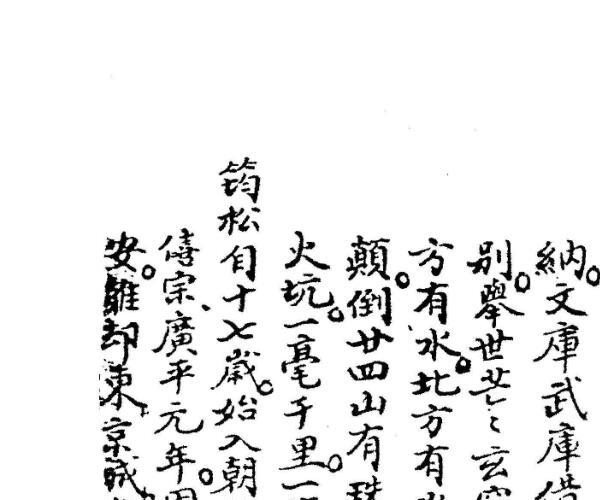 納。文庫武庫借
別。舉世茫〻玄
方有水。北方有
顛。倒廿四山有珠
火坑。一毫千里。一
筠松自十七歲。始入朝
僖宗、廣平元年。
安。離却東京